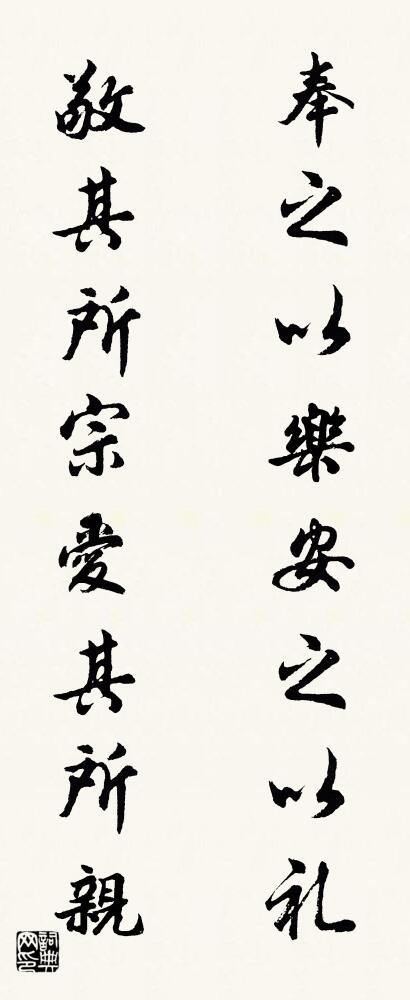 奉之以樂安之以礼
敬其所宗愛其所親